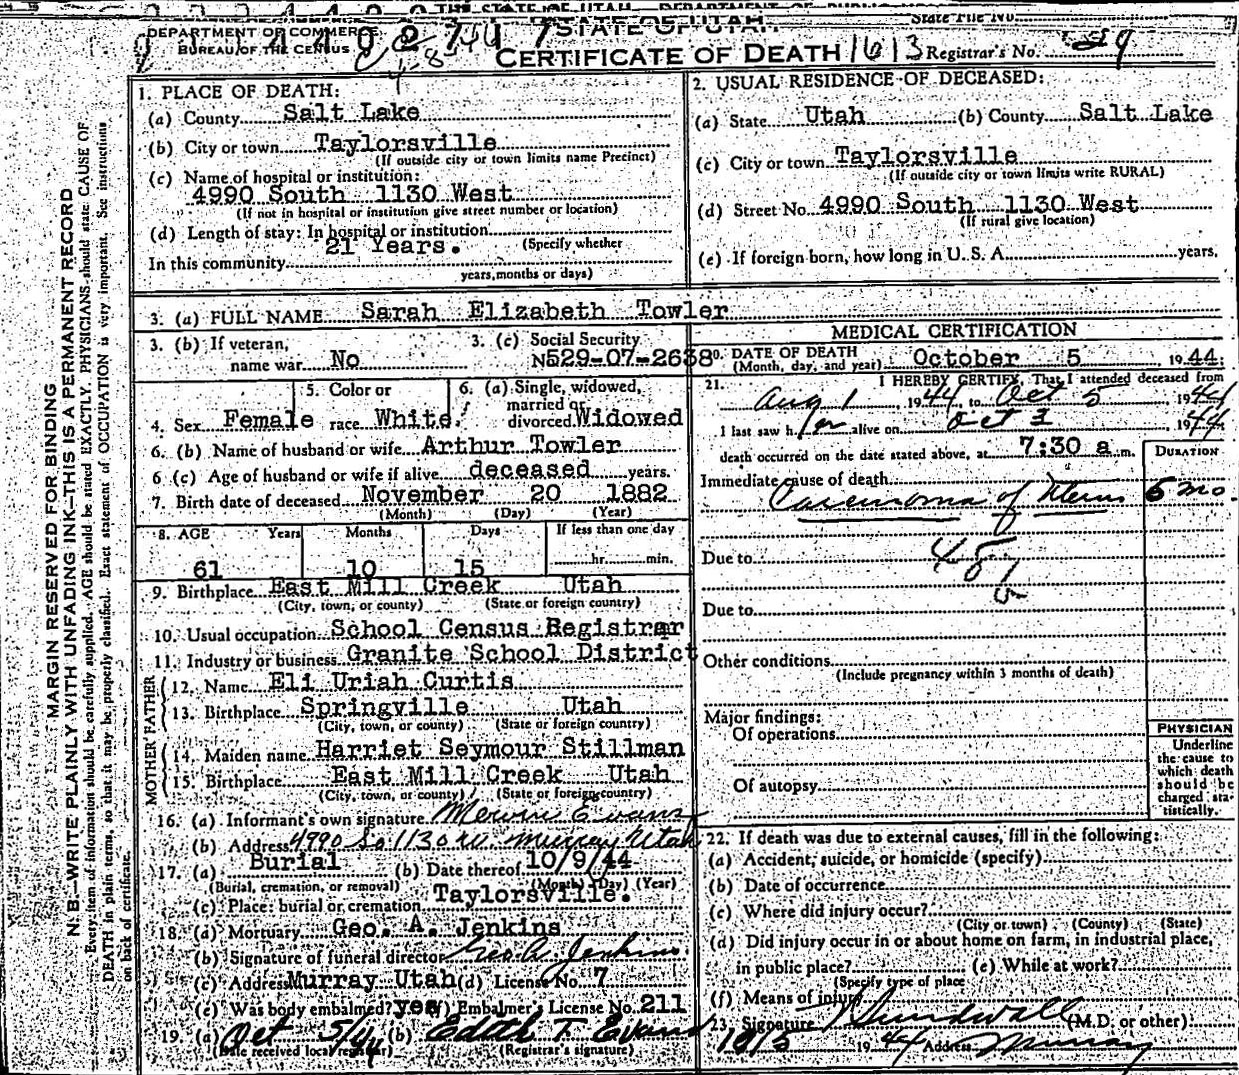 THE STATE OF UTAH — DEPARTMENT OF
STATE OF UTAH
State File No.
DEPARTMENT OF COMMERCE
BUREAU OF THE CENSUS
CERTIFICATE OF DEATH 1613 Registrar's No. 29
MARGIN RESERVED FOR BINDING
N. B.—WRITE PLAINLY WITH UNFADING INK—THIS IS A PERMANENT RECORD
Every item of information should be carefully supplied. AGE should be stated EXACTLY. PHYSICIANS should state CAUSE OF
DEATH in plain terms, so that it may be properly classified. Exact statement of OCCUPATION is very important. See instructions
on back of certificate.
1. PLACE OF DEATH:
(a) County Salt Lake
(b) City or town Taylorsville
(If outside city or town limits name Precinct)
(c) Name of hospital or institution:
4990 South 1130 West
(If not in hospital or institution give street number or location)
(d) Length of stay: In hospital or institution
21 Years. (Specify whether
In this community
years, months or days)
2. USUAL RESIDENCE OF DECEASED:
(a) State Utah (b) County Salt Lake
(c) City or town Taylorsville
(If outside city or town limits write RURAL)
(d) Street No. 4990 South 1130 West
(If rural give location)
(e) If foreign born, how long in U. S. A. years.
3. (a) FULL NAME Sarah Elizabeth Towler
3. (b) If veteran, 3. (c) Social Security
name war No N529-07-2638
4. Sex Female 5. Color or race White. 6. (a) Single, widowed, married or divorced Widowed
6. (b) Name of husband or wife Arthur Towler
6 (c) Age of husband or wife if alive deceased years.
7. Birth date of deceased November 20 1882
(Month) (Day) (Year)
8. AGE Years Months Days If less than one day
61 10 15 hr. min.
9. Birthplace East Mill Creek Utah
(City, town, or county) (State or foreign country)
10. Usual occupation School Census Registrar
11. Industry or business Granite School District
FATHER
12. Name Eli Uriah Curtis
13. Birthplace Springville Utah
(City, town, or county) (State or foreign country)
MOTHER
14. Maiden name Harriet Seymour Stillman
15. Birthplace East Mill Creek Utah
(City, town, or county) (State or foreign country)
16. (a) Informant's own signature Evans
(b) Address 4990 So 1130 W. Murray Utah
17. (a) Burial (b) Date thereof 10/9/44
(Burial, cremation, or removal) (Month) (Day) (Year)
(c) Place: burial or cremation Taylorsville.
18. (a) Mortuary Geo. A. Jenkins
(b) Signature of funeral director Geo A. Jenkins
(c) Address Murray Utah (d) License No. 7
(e) Was body embalmed? yes (f) Embalmer's License No. 211
19. (a) Oct 5/44 (b) Edith T. Evans
(Date received local registrar) (Registrar's signature)
MEDICAL CERTIFICATION
20. DATE OF DEATH
(Month, day, and year) October 5 1944.
21. I HEREBY CERTIFY, That I attended deceased from
Aug 1 1944, to Oct 5 1944
I last saw her alive on Oct 3 1944
death occurred on the date stated above, at 7:30 a. m.
DURATION
Immediate cause of death
Carcinoma of Uterus 6 mo.
Due to
Due to
Other conditions
(Include pregnancy within 3 months of death)
Major findings:
Of operations
Of autopsy
PHYSICIAN
Underline
the cause to
which death
should be
charged sta-
tistically.
22. If death was due to external causes, fill in the following:
(a) Accident, suicide, or homicide (specify)
(b) Date of occurrence
(c) Where did injury occur?
(City or town) (County) (State)
(d) Did injury occur in or about home on farm, in industrial place,
in public place? (e) While at work?
(Specify type of place
(f) Means of injury
23. Signature Sundwall (M.D. or other)
10/5 1944 Address Murray